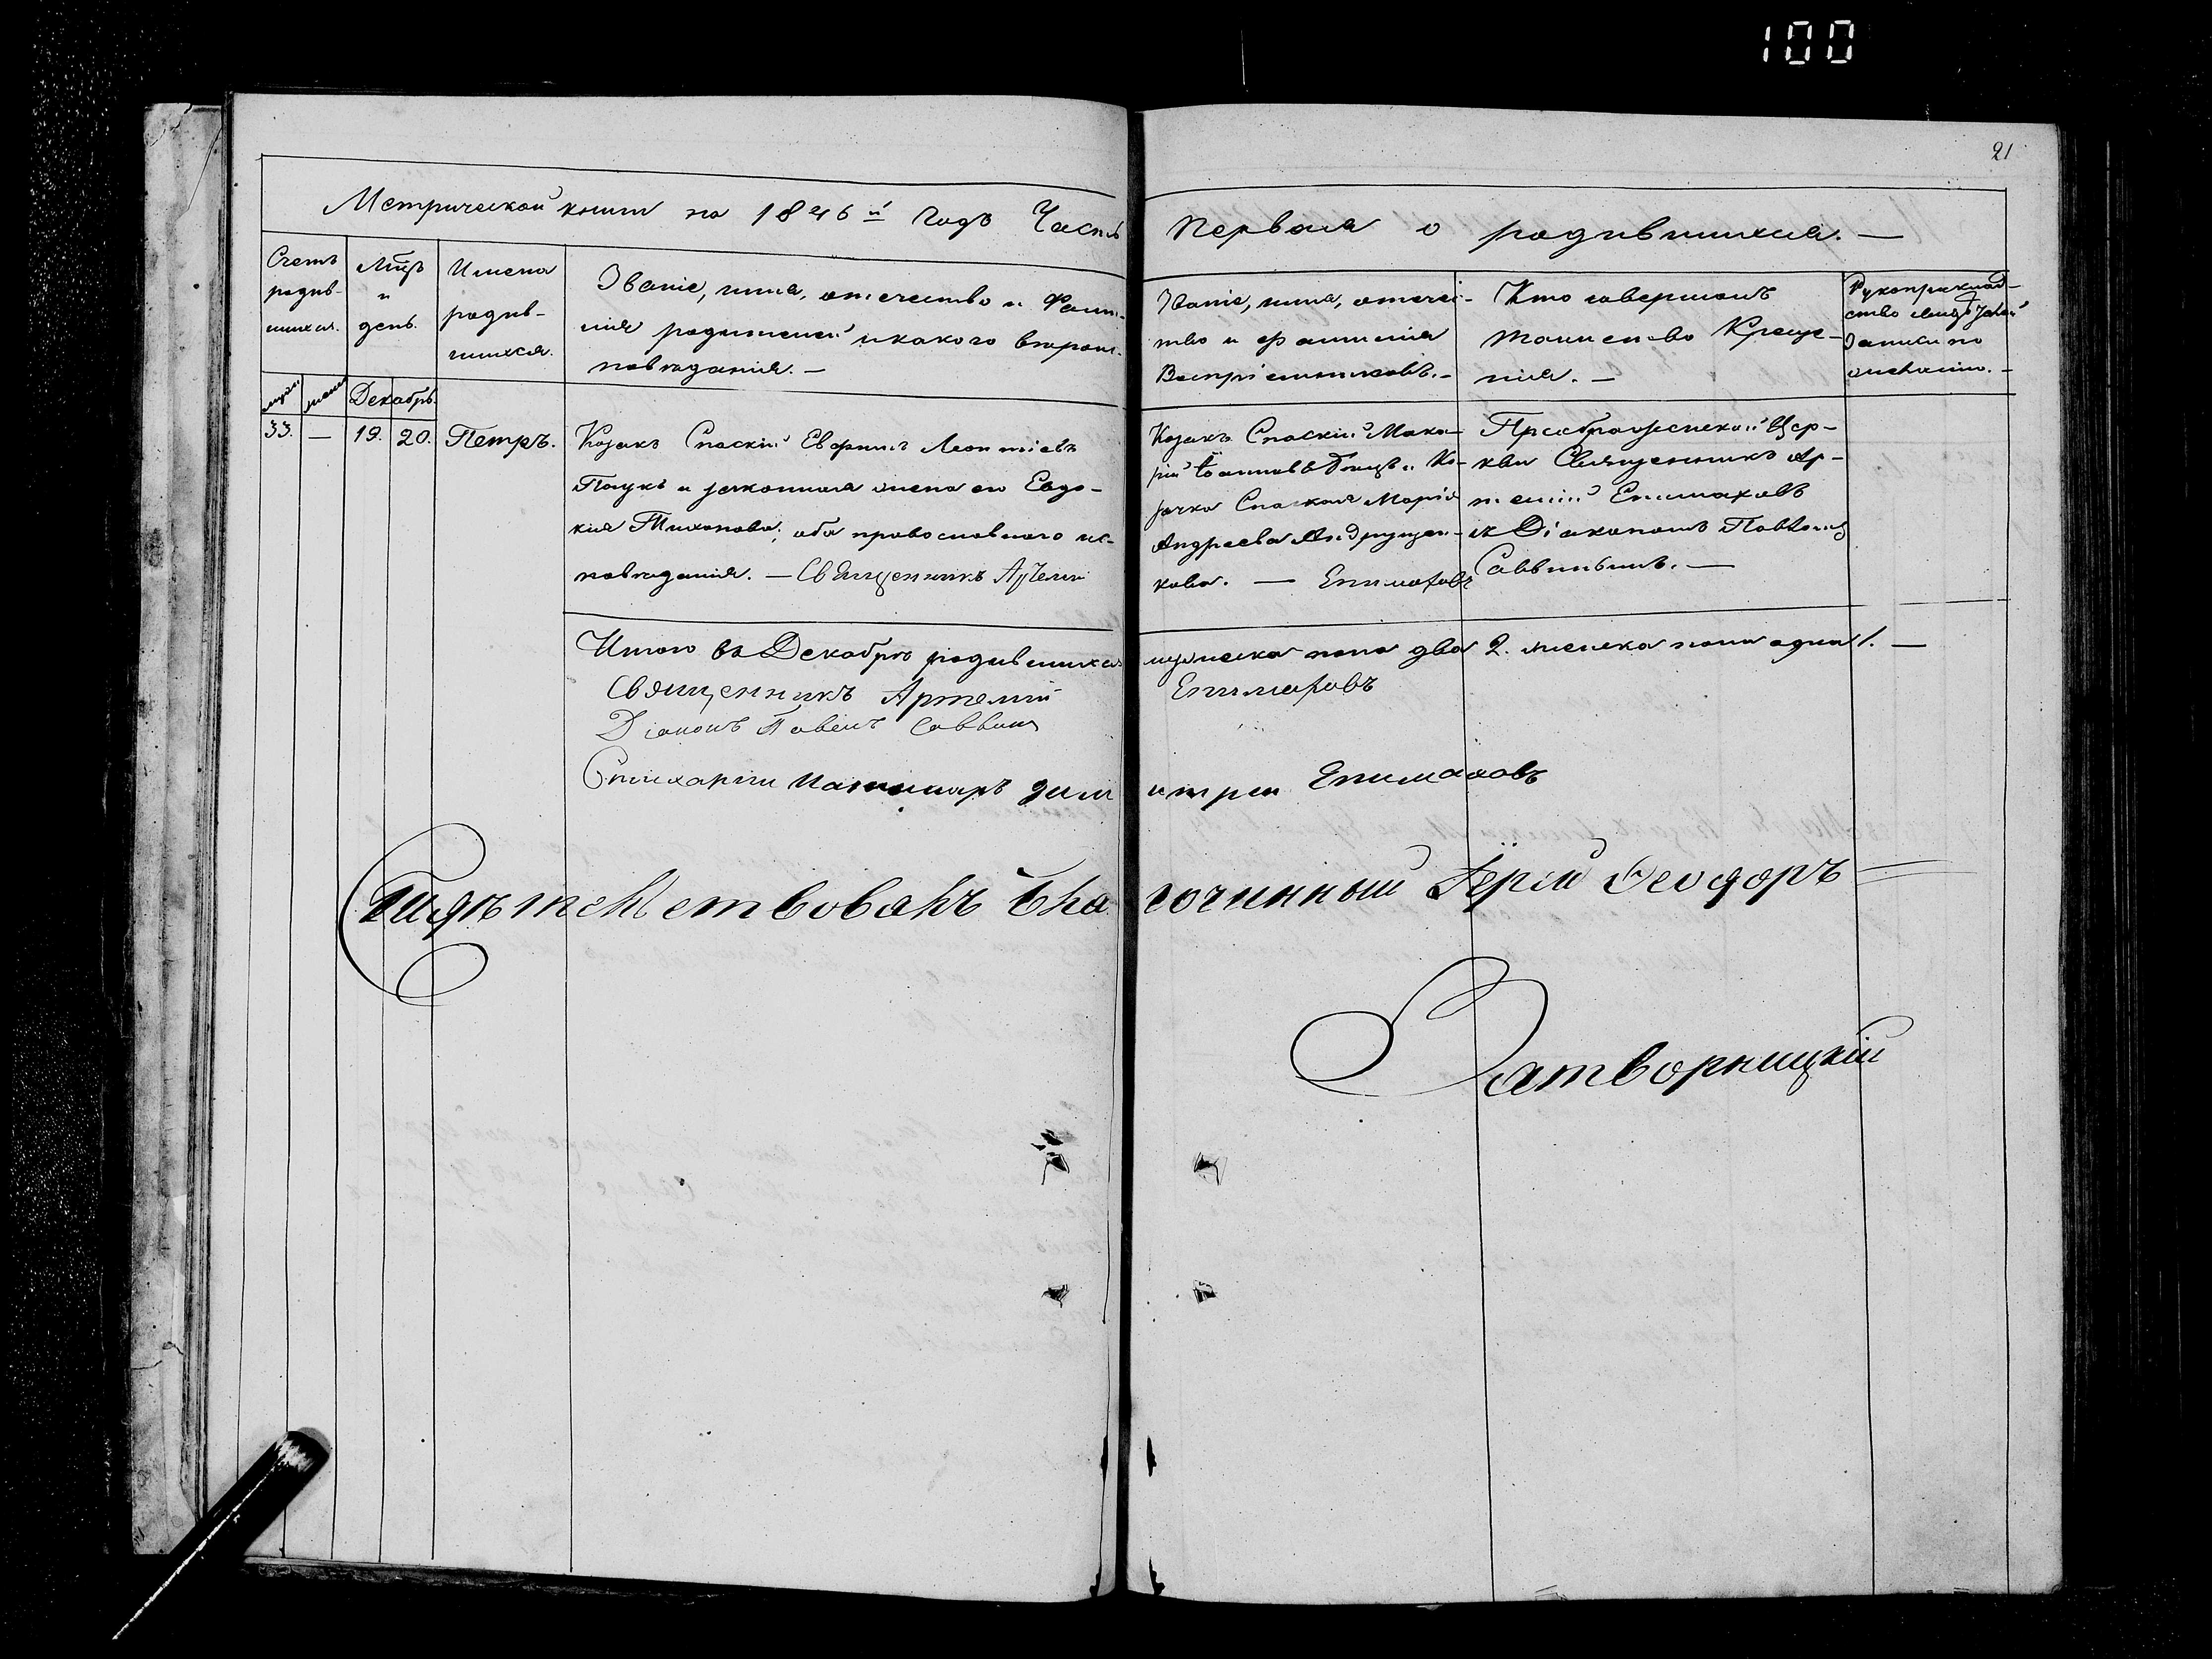 100
21
Метрической книги на 1846й Годъ Часть Первая о родившихся. —
Счетъ родив- шихся.
Мцъ и день.
Имена родив- шихся.
Званіе, имя, отечество и Фами-
лія родителей и какого вѣроис-
повѣданія. —
Званіе, имя, отечес-
тво и фамилія
Воспріемниковъ. —
Кто совершалъ
таинство Креще-
нія. —
Рукоприклад-
ство
записи по
желанію. —
Декабрь.
33. — 19. 20. Петръ.
Козакъ Спаскій Леонтіевъ
Паукъ и законная жена его Евдо-
кия Тихонова; оба православного ис-
повѣданія. — Священникъ Артемій
Козакъ Спаскій Мака-
рій Іоанновъ и Ко-
зачка Спаская Марія
Андреева Андрущен-
кова. — Епимаховъ
Преображенской Цер-
кви Священникъ Ар-
темій Епимаховъ
и Діакономъ Павломъ
Саввинымъ. —
Итого въ Декабрѣ родившихся мужеска пола два 2. женска пола одна 1. —
Священникъ Артемій Епимаховъ
Діаконъ Павелъ Саввинъ
Стихарни Пономарь Димитрей Епимаховъ
Свидѣтельствовалъ Благочинный Іерій Феодоръ
Затворницкій